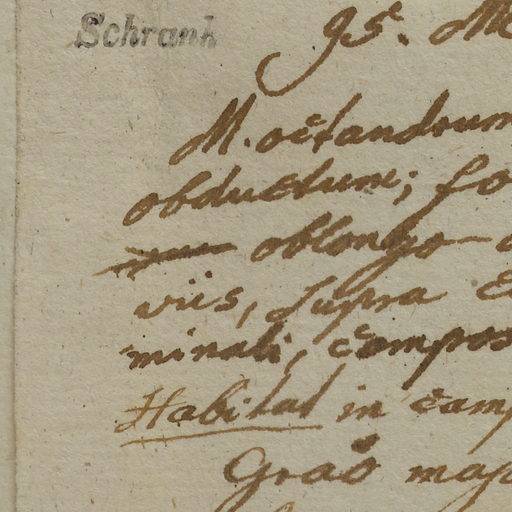 Schrank
95. Me
M. octandrum
obductum; fo
oblongo-
viis, supra
minali, compos
Habitat in camp
Grao maj